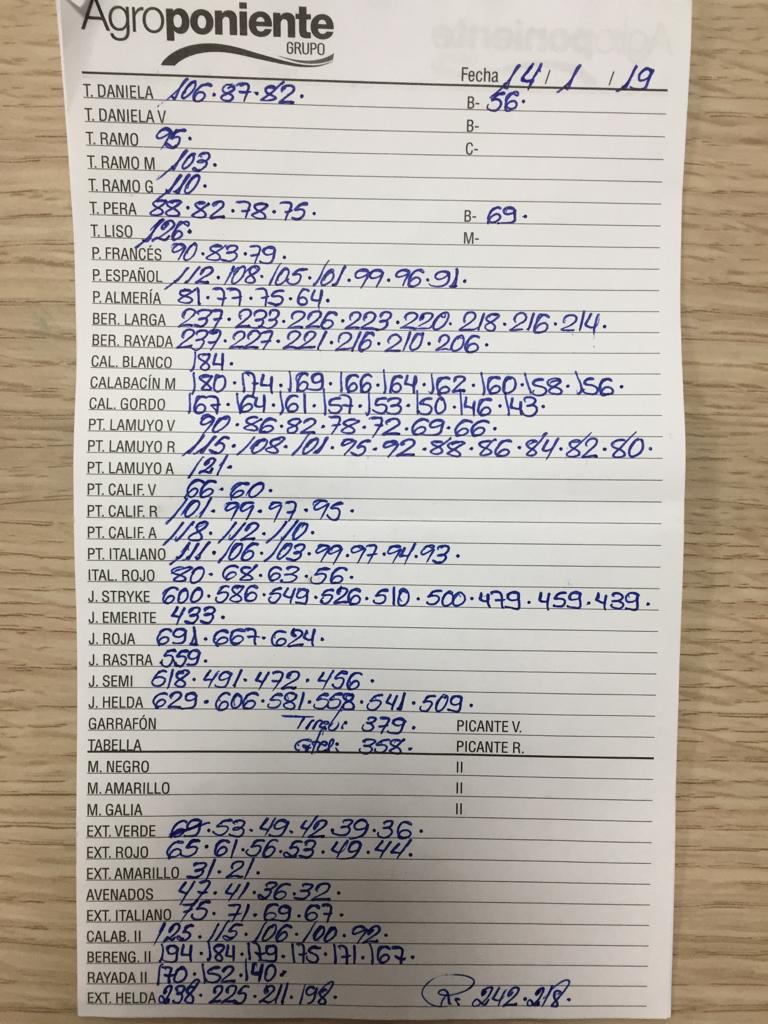 Agroponiente
GRUPO
Fecha 14 / 1 / 19
T. DANIELA 106. 87. 82. B- 56.
T. DANIELA V B-
T. RAMO 95. C-
T. RAMO M 103.
T. RAMO G 110.
T. PERA 88. 82. 78. 75. B- 69.
T. LISO 126. M-
P. FRANCÉS 90. 83. 79.
P. ESPAÑOL 112. 108. 105. 101. 99. 96. 91.
P. ALMERÍA 81. 77. 75. 64.
BER. LARGA 237. 233. 226. 223. 220. 218. 216. 214.
BER. RAYADA 237. 227. 221. 216. 210. 206.
CAL. BLANCO 184.
CALABACÍN M 180. 174. 169. 166. 164. 162. 160. 158. 156.
CAL. GORDO 167. 164. 161. 157. 153. 150. 146. 143.
PT. LAMUYO V 90. 86. 82. 78. 72. 69. 66.
PT. LAMUYO R 115. 108. 101. 95. 92. 88. 86. 84. 82. 80.
PT. LAMUYO A 121.
PT. CALIF. V 66. 60.
PT. CALIF. R 101. 99. 97. 95.
PT. CALIF. A 118. 112. 110.
PT. ITALIANO 111. 106. 103. 99. 97. 94. 93.
ITAL. ROJO 80. 68. 63. 56.
J. STRYKE 600. 586. 549. 526. 510. 500. 479. 459. 439.
J. EMERITE 433.
J. ROJA 691. 667. 624.
J. RASTRA 559.
J. SEMI 618. 491. 472. 456.
J. HELDA 629. 606. 581. 558. 541. 509.
GARRAFÓN 379. PICANTE V.
TABELLA 358. PICANTE R.
M. NEGRO II
M. AMARILLO II
M. GALIA II
EXT. VERDE 69. 53. 49. 42. 39. 36.
EXT. ROJO 65. 61. 56. 53. 49. 44.
EXT. AMARILLO 31. 21.
AVENADOS 47. 41. 36. 32.
EXT. ITALIANO 75. 71. 69. 67.
CALAB. II 125. 115. 106. 100. 92.
BERENG. II 194. 184. 179. 175. 171. 167.
RAYADA II 170. 152. 140.
EXT. HELDA 238. 225. 211. 198. R. 242. 218.